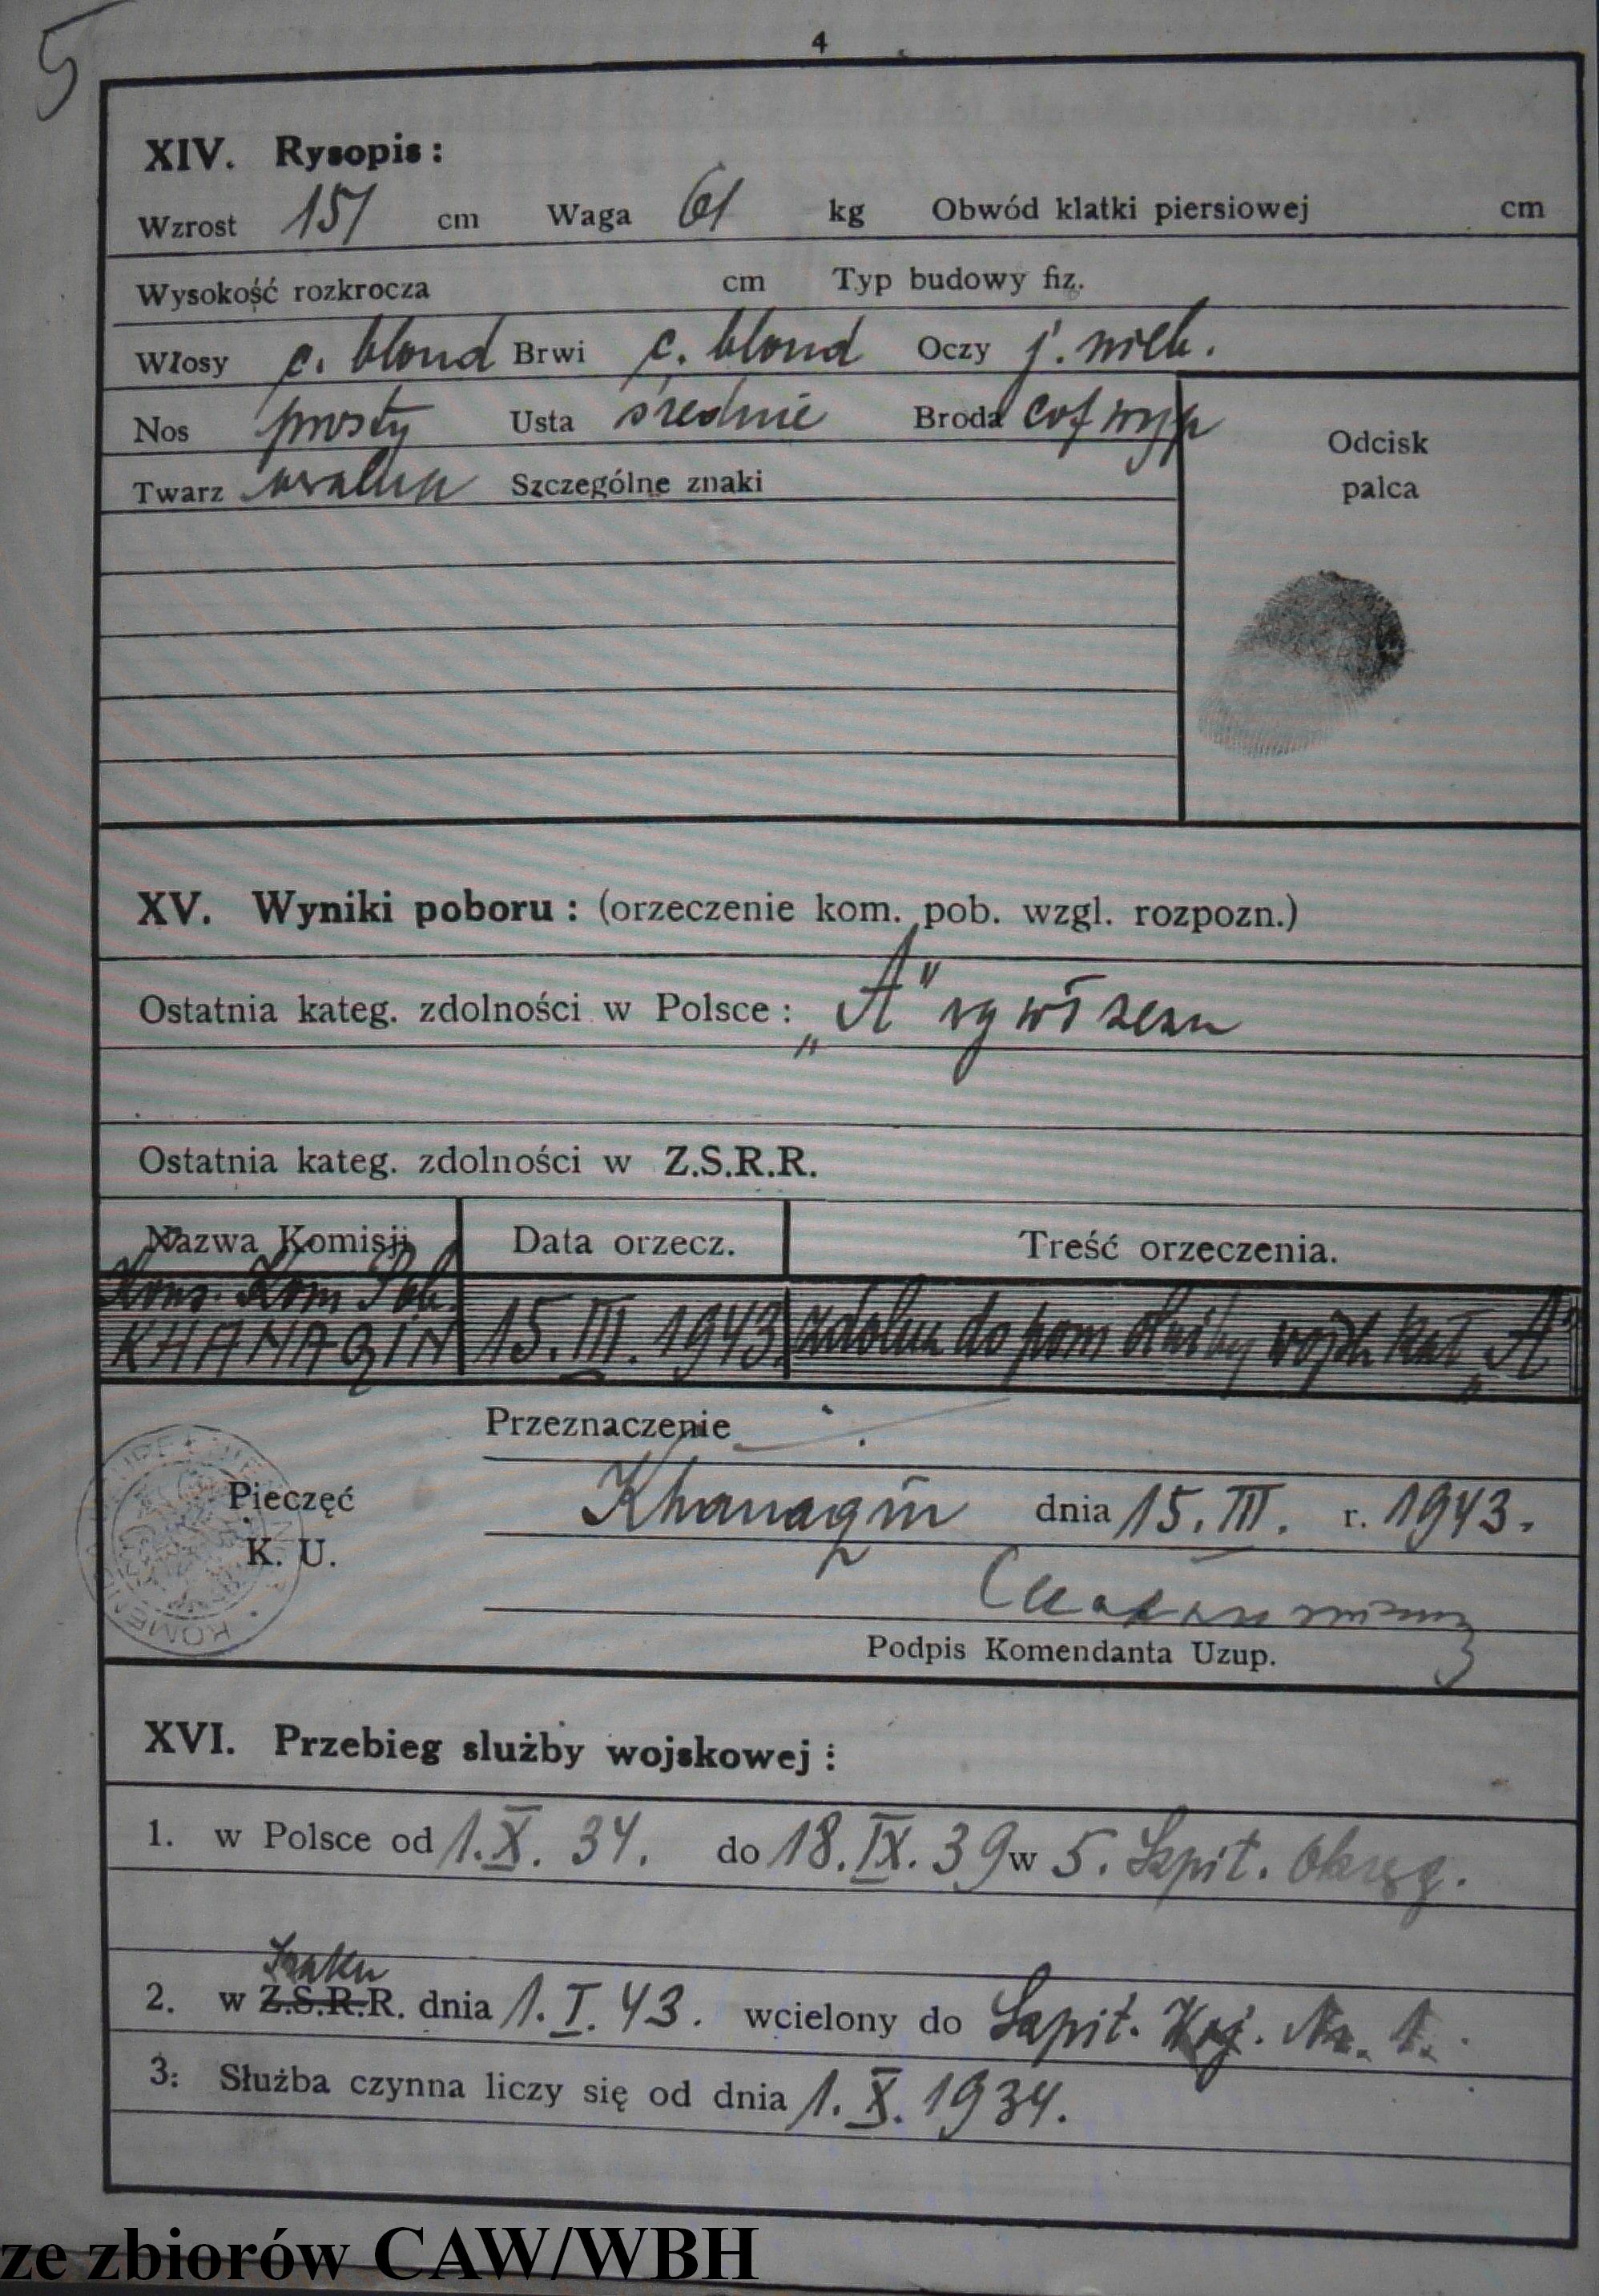 5
4
XIV. Rysopis:
Wzrost 151 cm Waga 61 kg Obwód klatki piersiowej cm
Wysokość rozkrocza cm Typ budowy fiz.
Włosy c. blond Brwi c. blond Oczy j. nieb.
Nos prosty Usta średnie Broda cof
Twarz owalna Szczególne znaki
Odcisk
palca
XV. Wyniki poboru: (orzeczenie kom. pob. wzgl. rozpozn.)
Ostatnia kateg. zdolności w Polsce: „A"
Ostatnia kateg. zdolności w Z.S.R.R.
Nazwa Komisji Data orzecz. Treść orzeczenia.
Kom. Pob.
KHANAQIN 15.III.1943. zdolna do pom służby wojsk kat „A"
Przeznaczenie
Pieczęć
K. U.
Khanaqin dnia 15.III. r. 1943.
Podpis Komendanta Uzup.
XVI. Przebieg służby wojskowej:
1. w Polsce od 1.X.34. do 18.IX.39 w 5. Szpit. Okręg.
Iraku
2. w Z.S.R.R. dnia 1.I.43. wcielony do Szpit. Woj. Nr. 1.
3. Służba czynna liczy się od dnia 1.X.1934.
ze zbiorów CAW/WBH